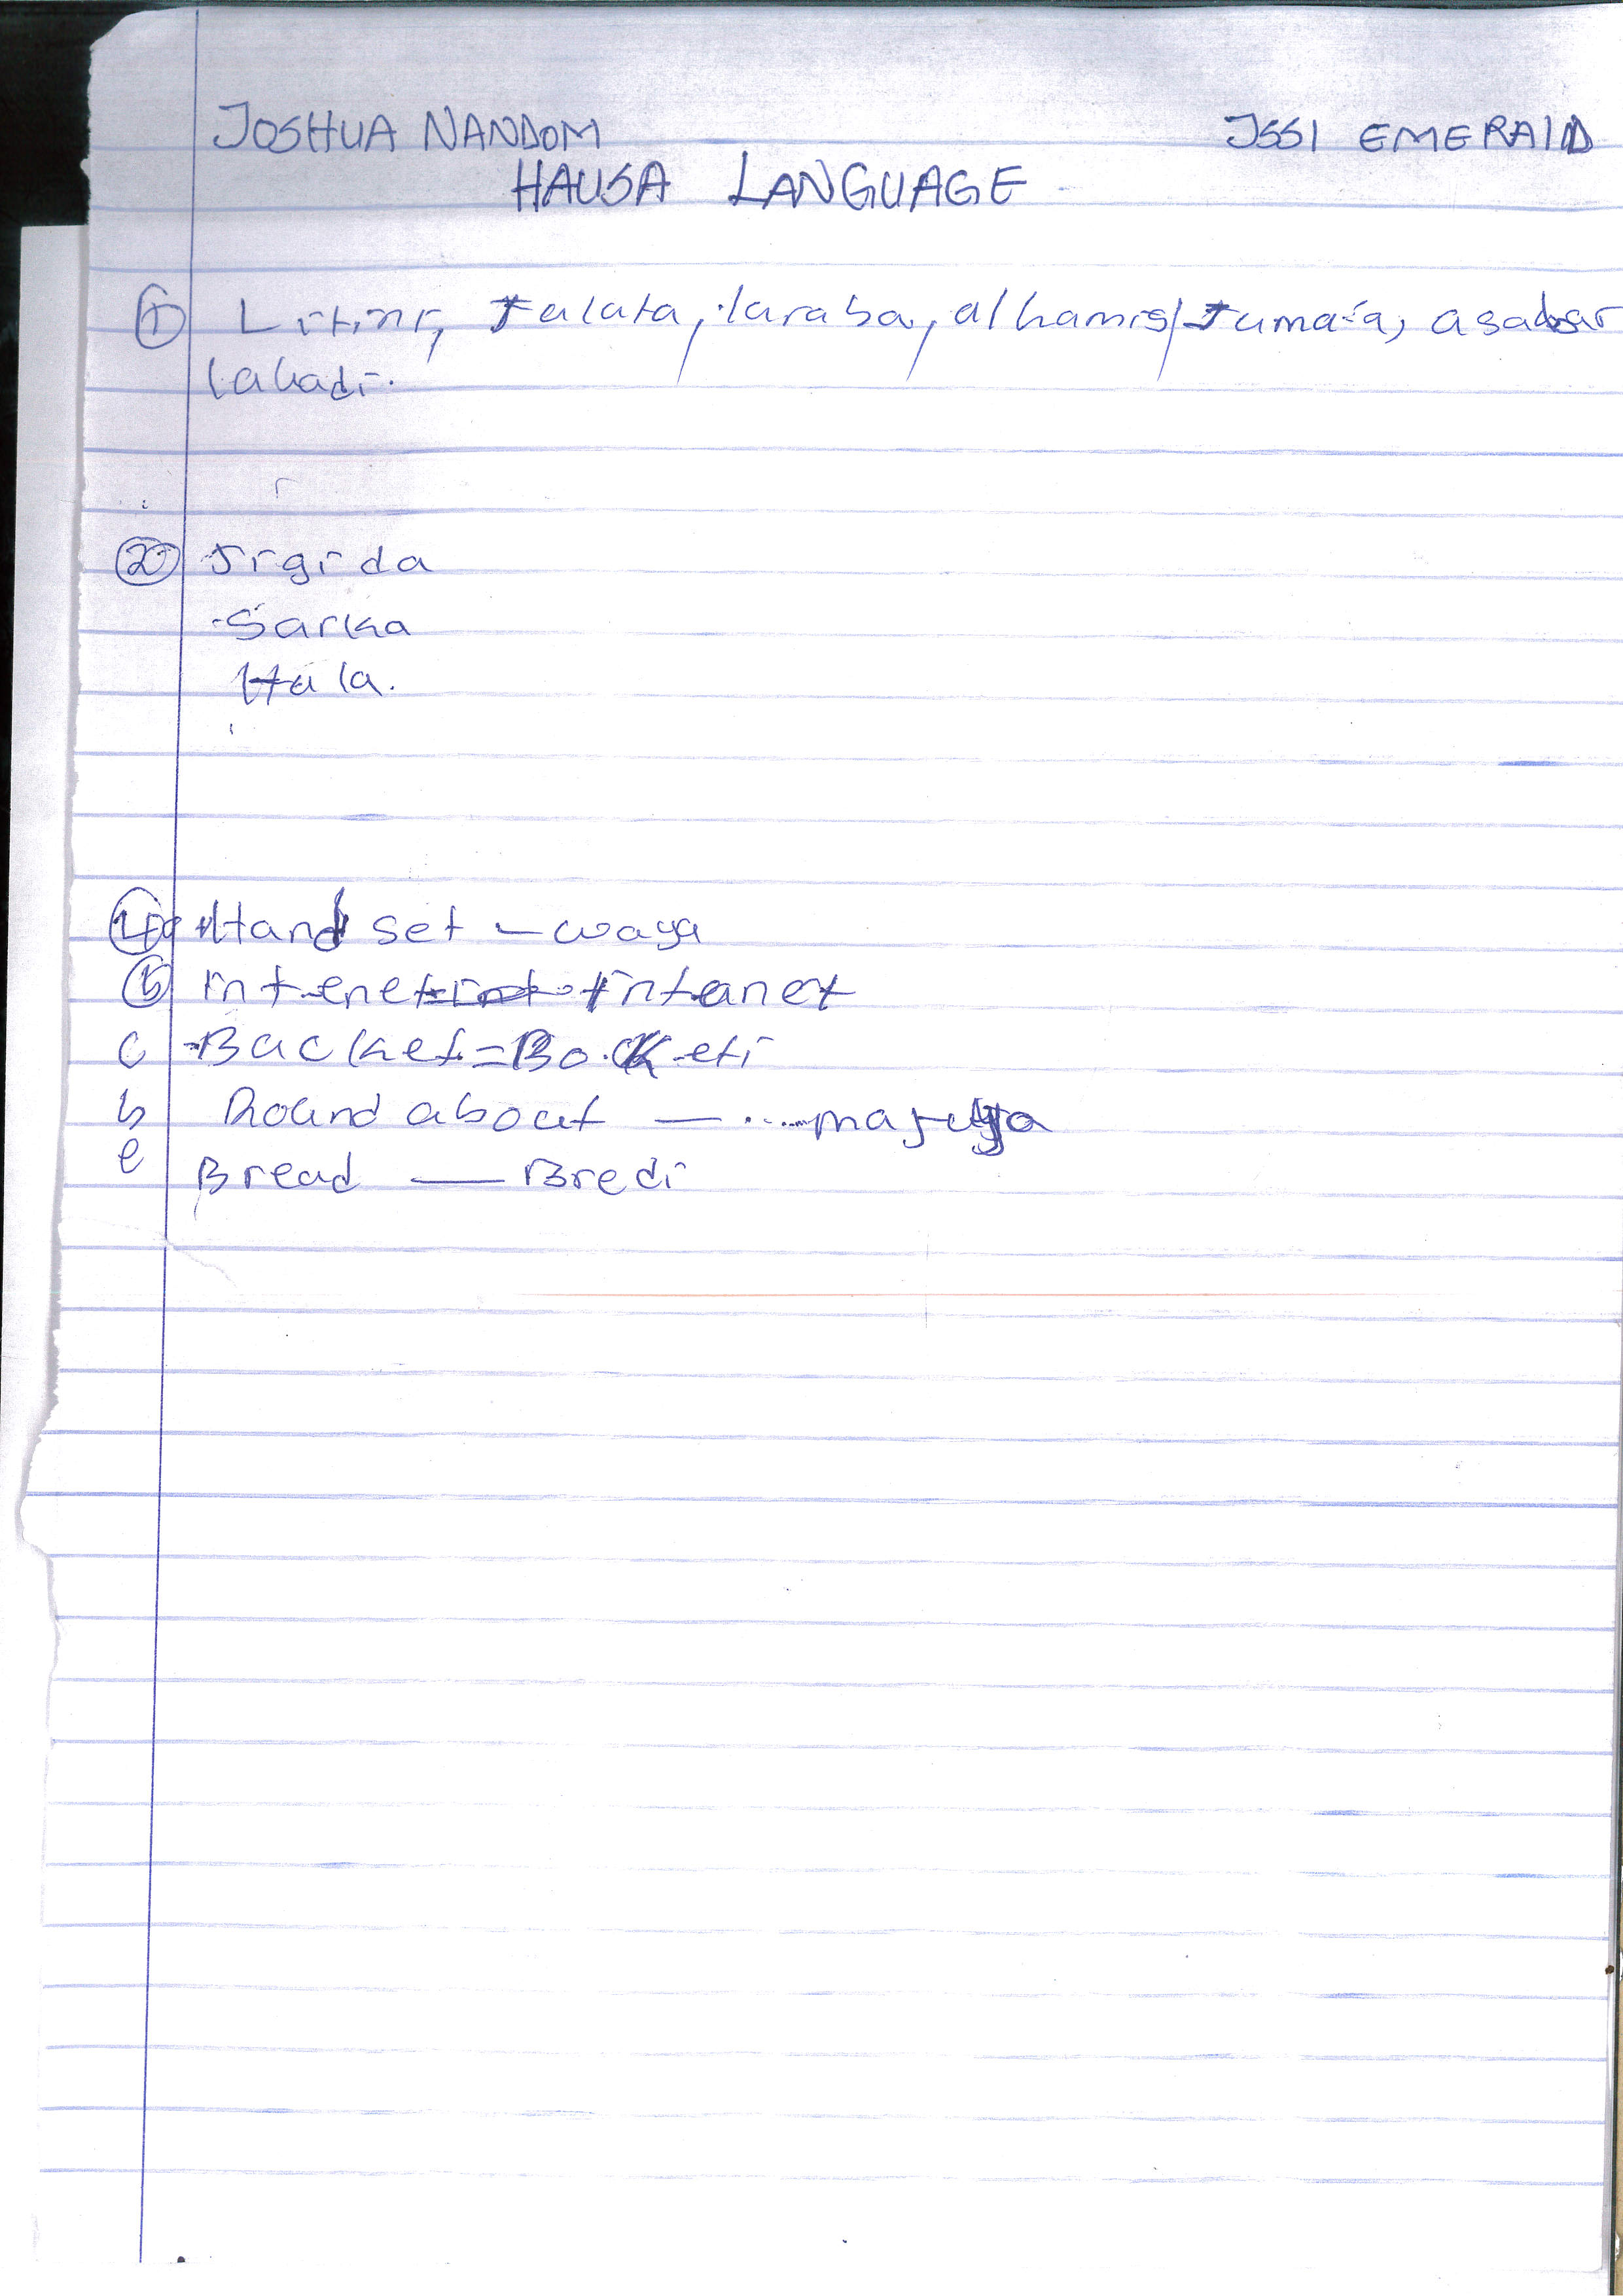 JOSHUA NANDOM JSS1 EMERALD
HAUSA LANGUAGE
1 Litini, Talata, laraba, alhamis, Juma'a, asabar
lahadi.
2 Jigida
Sarka
Hula.
4a Hand set - waya
b intenet intanet
c Backet = Boketi
b Round about - majuya
e Bread - Bredi